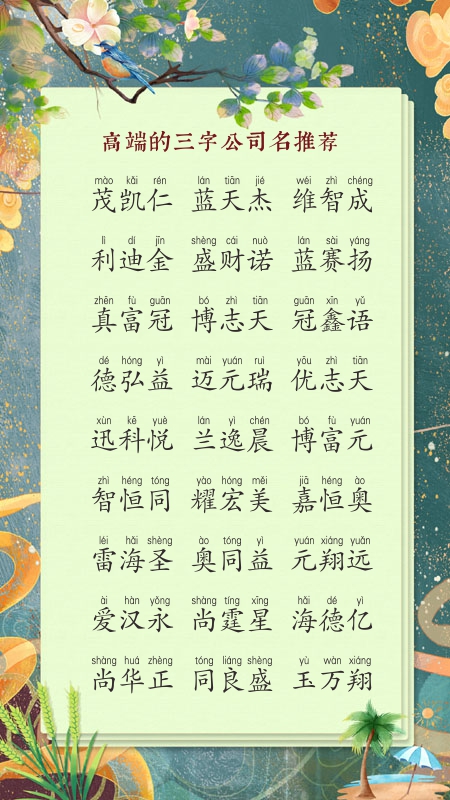 高端的三字公司名推荐
mào kǎi rén lán tiān jié wéi zhì chéng
茂凯仁 蓝天杰 维智成
lì dí jīn shèng cái nuò lán sài yáng
利迪金 盛财诺 蓝赛扬
zhēn fù guān bó zhì tiān guān xīn yǔ
真富冠 博志天 冠鑫语
dé hóng yì mài yuán ruì yōu zhì tiān
德弘益 迈元瑞 优志天
xùn kē yuè lán yì chén bó fù yuán
迅科悦 兰逸晨 博富元
zhì héng tóng yào hóng měi jiā héng ào
智恒同 耀宏美 嘉恒奥
léi hǎi shèng ào tóng yì yuán xiáng yuǎn
雷海圣 奥同益 元翔远
ài hàn yǒng shàng tíng xīng hǎi dé yì
爱汉永 尚霆星 海德亿
shàng huá zhèng tóng liáng shèng yù wàn xiáng
尚华正 同良盛 玉万翔